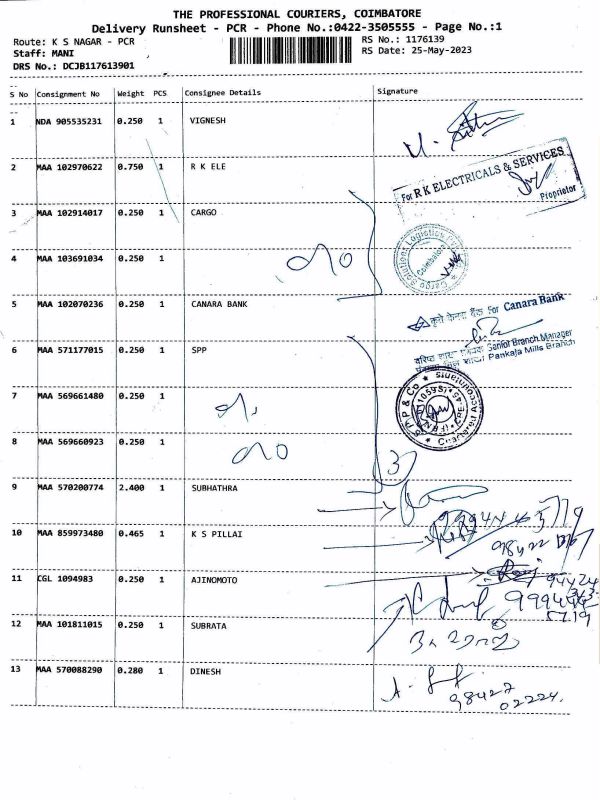 THE PROFESSIONAL COURIERS, COIMBATORE
Delivery Runsheet - PCR - Phone No.:0422-3505555 - Page No.:1
Route: K S NAGAR - PCR
RS No.: 1176139
Staff: MANI
RS Date: 25-May-2023
DRS No.: DCJB117613901
S No Consignment No Weight PCS Consignee Details Signature
1 NDA 905535231 0.250 1 VIGNESH
2 MAA 102970622 0.750 1 R K ELE
For R K ELECTRICALS & SERVICES
Proprietor
3 MAA 102914017 0.250 1 CARGO
Cargo Solutions Logistics
Coimbatore
4 MAA 103691034 0.250 1
5 MAA 102070236 0.250 1 CANARA BANK
कृते केनरा बैंक For Canara Bank
Senior Branch Manager
Pankaja Mills Branch
6 MAA 571177015 0.250 1 SPP
S P P & Co
Chartered Accountants
7 MAA 569661480 0.250 1
8 MAA 569660923 0.250 1
3
9 MAA 570200774 2.400 1 SUBHATHRA
10 MAA 859973480 0.465 1 K S PILLAI
11 CGL 1094983 0.250 1 AJINOMOTO
12 MAA 101811015 0.250 1 SUBRATA
13 MAA 570088290 0.280 1 DINESH
98427
02224.